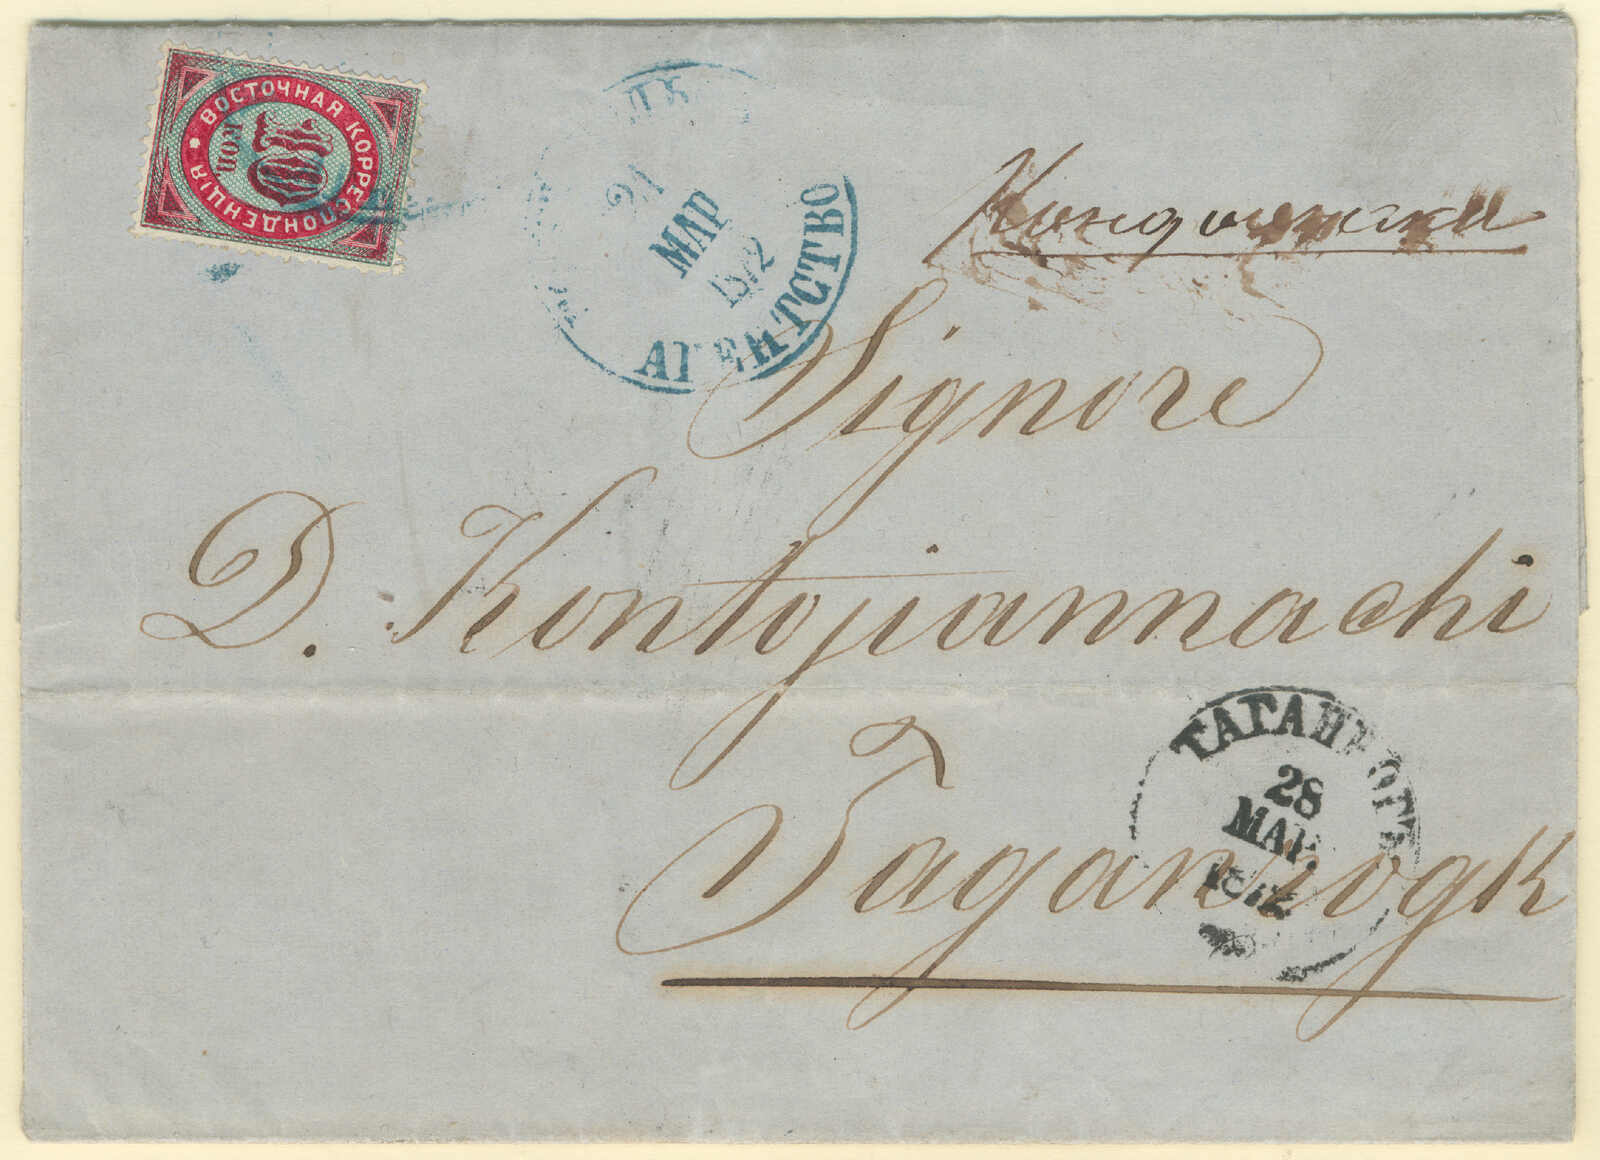 ВОСТОЧНАЯ КОРРЕСПОНДЕНЦІЯ
10
КОП
21
МАР
1872
АГЕНТСТВО
Signore
D. Kontojiannachi
Taganrogk
ТАГАНРОГЪ
28
МАР.
1872